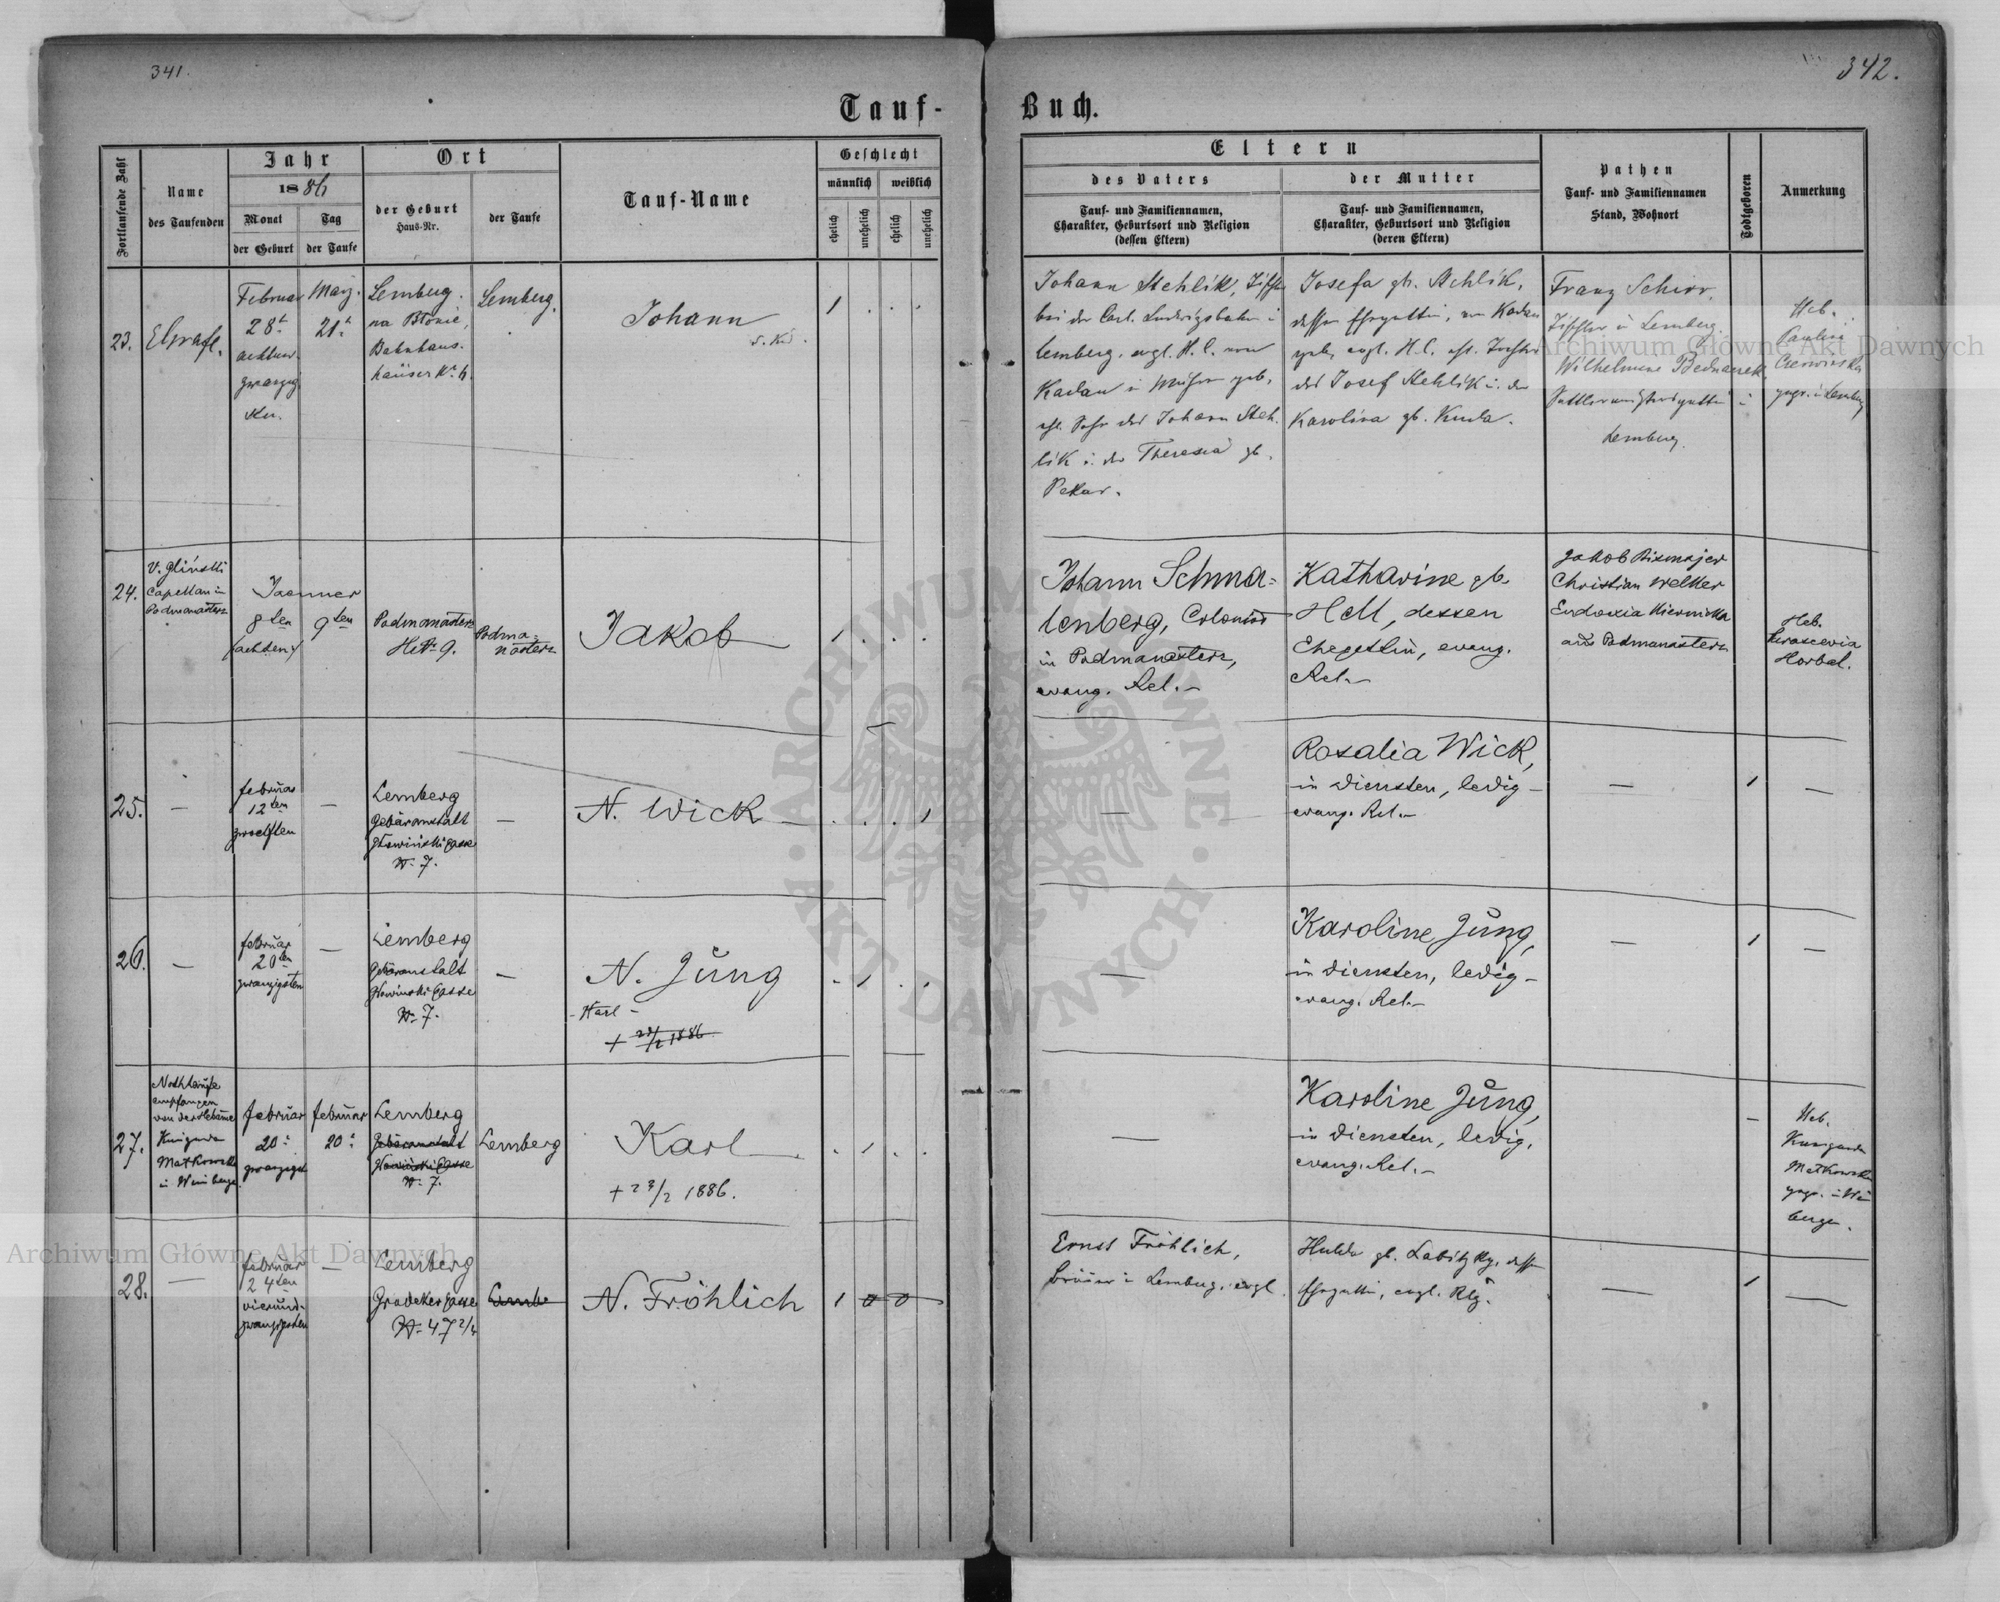 341.
342.
Tauf-
Buch.
Fortlaufende Zahl
Name
des Taufenden
Jahr
1886
Monat
der Geburt
Tag
der Taufe
Ort
der Geburt
Haus-Nr.
der Taufe
Tauf-Name
Geschlecht
männlich
weiblich
ehelich
unehelich
ehelich
unehelich
Eltern
des Vaters
Tauf- und Familiennamen,
Charakter, Geburtsort und Religion
(dessen Eltern)
der Mutter
Tauf- und Familiennamen,
Charakter, Geburtsort und Religion
(deren Eltern)
Pathen
Tauf- und Familiennamen
Stand, Wohnort
Todtgeboren
Anmerkung
23.
Februar
28t
März
21t
Lemberg
na Błonie,
Bahnhaus-
häuser Nr 6.
Lemberg.
Johann
1
Johann Stehlik,
bei der Carl Ludwigsbahn i
Lemberg, evgl. H. C. von
Kadau i Mähren geb.
ehl. Sohn des Johann Steh-
lik u. der Theresia gb.
Pekar.
Josefa gb. Stehlik,
dessen Ehegattin, von Kadau
geb. evgl. H. C. ehl. Tochter
des Josef Stehlik u. der
Karolina gb. Kuda.
Franz Schirr,
Tischler in Lemberg.
Wilhelmine Bednarek
Sattlermeistersgattin i
Lemberg.
Heb.
Paulin
gepr. i Lemberg
24.
V. Gliński
Capellan in
Podmanasterz
Jaenner
8ten
(achten)
9ten
Podmonasterz
HsNr 9.
Podma-
nasterz
Jakob
1
Johann Schma-
lenberg, Colonist
in Podmanasterz,
evang. Rel.-
Katharine gb.
Hell, dessen
Ehegattin, evang.
Rel.-
Jakob Bismajer
Christian Welker
Eudoxia
aus Podmanasterz
Heb.
Horbal.
25.
februar
12ten
zwoelften
Lemberg
Gebäranstalt
Głowiński Gasse
Nr 7.
N. Wick
1
Rosalia Wick,
in Diensten, ledig-
evang. Rel.-
1
26.
februar
20ten
zwanzigsten
Lemberg
Gebäranstalt
Głowinski Gasse
Nr 7.
N. Jung
- Karl -
+ 23/2 1886
1
Karoline Jung,
in Diensten, ledig-
evang. Rel.-
1
27.
Nothtaufe
empfangen
von der Hebame
Kunigunda
Matkowska
in Weinbergen
februar
20t
zwanzigst
februar
20t
Lemberg
Gebäranstalt
Głowinski Gasse
Nr 7.
Lemberg
Karl
+ 23/2 1886.
1
Karoline Jung,
in Diensten, ledig,
evang. Rel.-
Heb.
Kunigunda
Matkowska
gepr. i Wein-
bergen.
28.
februar
24ten
vierund-
zwanzigsten
Lemberg
Grodeker Gasse
Nr 47 2/4
Lembe
N. Fröhlich
1 0 0
Ernst Fröhlich,
Bräuer i Lemberg, evgl.
Hulda gb. Labitzky, dessen
Ehegattin, evgl. Rlg.
1
Archiwum Główne Akt Dawnych
Archiwum Główne Akt Dawnych
ARCHIWUM GŁÓWNE · AKT DAWNYCH ·